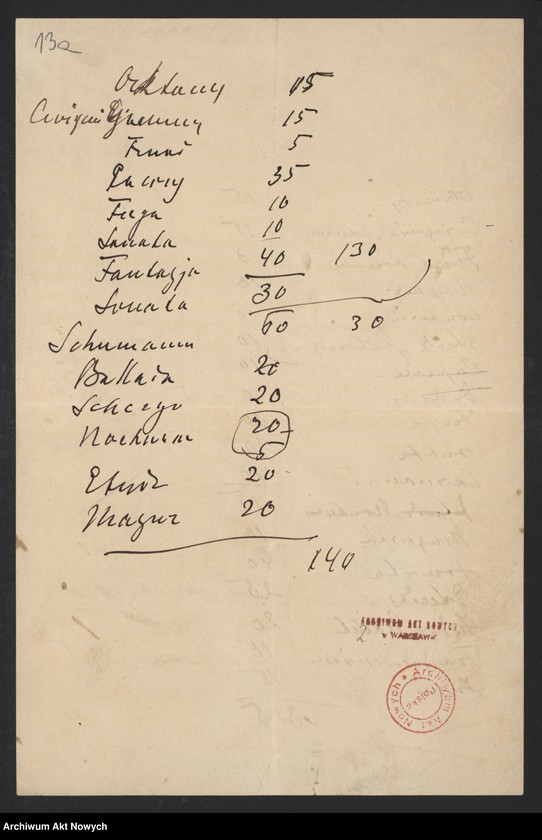 13a
Oktawy 15
Ćwiczenia 15
5
35
Fuga 10
Sonata 10
Fantazja 40 130
Sonata 30
Schumann 60 30
Ballada 20
Scherzo 20
Nocturn 20
5
Etiud 20
Mazur 20
140
ARCHIWUM AKT NOWYCH
w WARSZAWIE
2
Archiwum Akt Nowych * Polska
Archiwum Akt Nowych